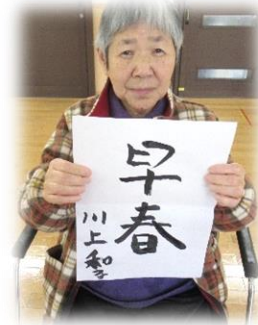 早春
川上和子